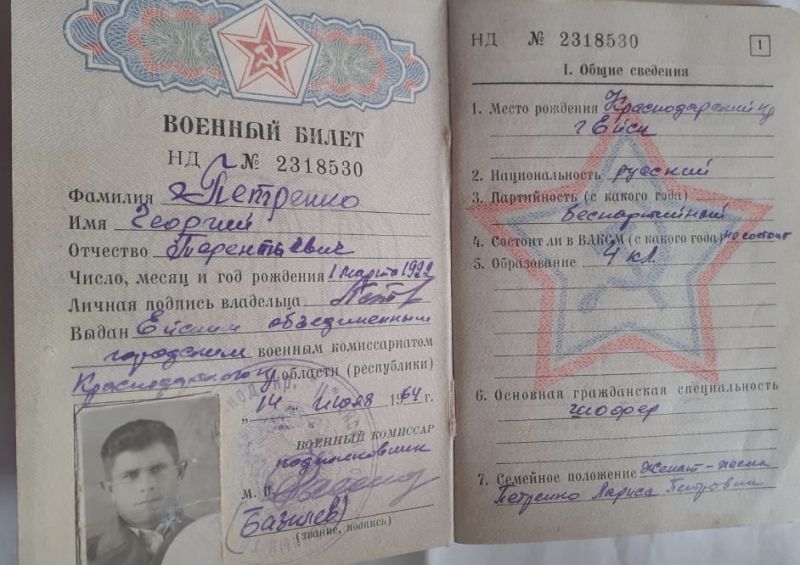 ВОЕННЫЙ БИЛЕТ
НД № 2318530
Фамилия Петренко
Имя Георгий
Отчество Терентьевич
Число, месяц и год рождения 1 марта 1922
Личная подпись владельца Петр
Выдан Ейским объединенным
городским военным комиссариатом
Краснодарского кр области (республики)
„14 „ Июля 1964 г.
ВОЕННЫЙ КОМИССАР
подполковник
М. П.
(Базилев)
(звание, подпись)
НД № 2318530
1
I. Общие сведения
1. Место рождения Краснодарский кр
г Ейск
2. Национальность русский
3. Партийность (с какого года)
беспартийный
4. Состоит ли в ВЛКСМ (с какого года) не состоит
5. Образование 4 кл.
6. Основная гражданская специальность
шофер
7. Семейное положение Женат - жена
Петренко Лариса Петровна